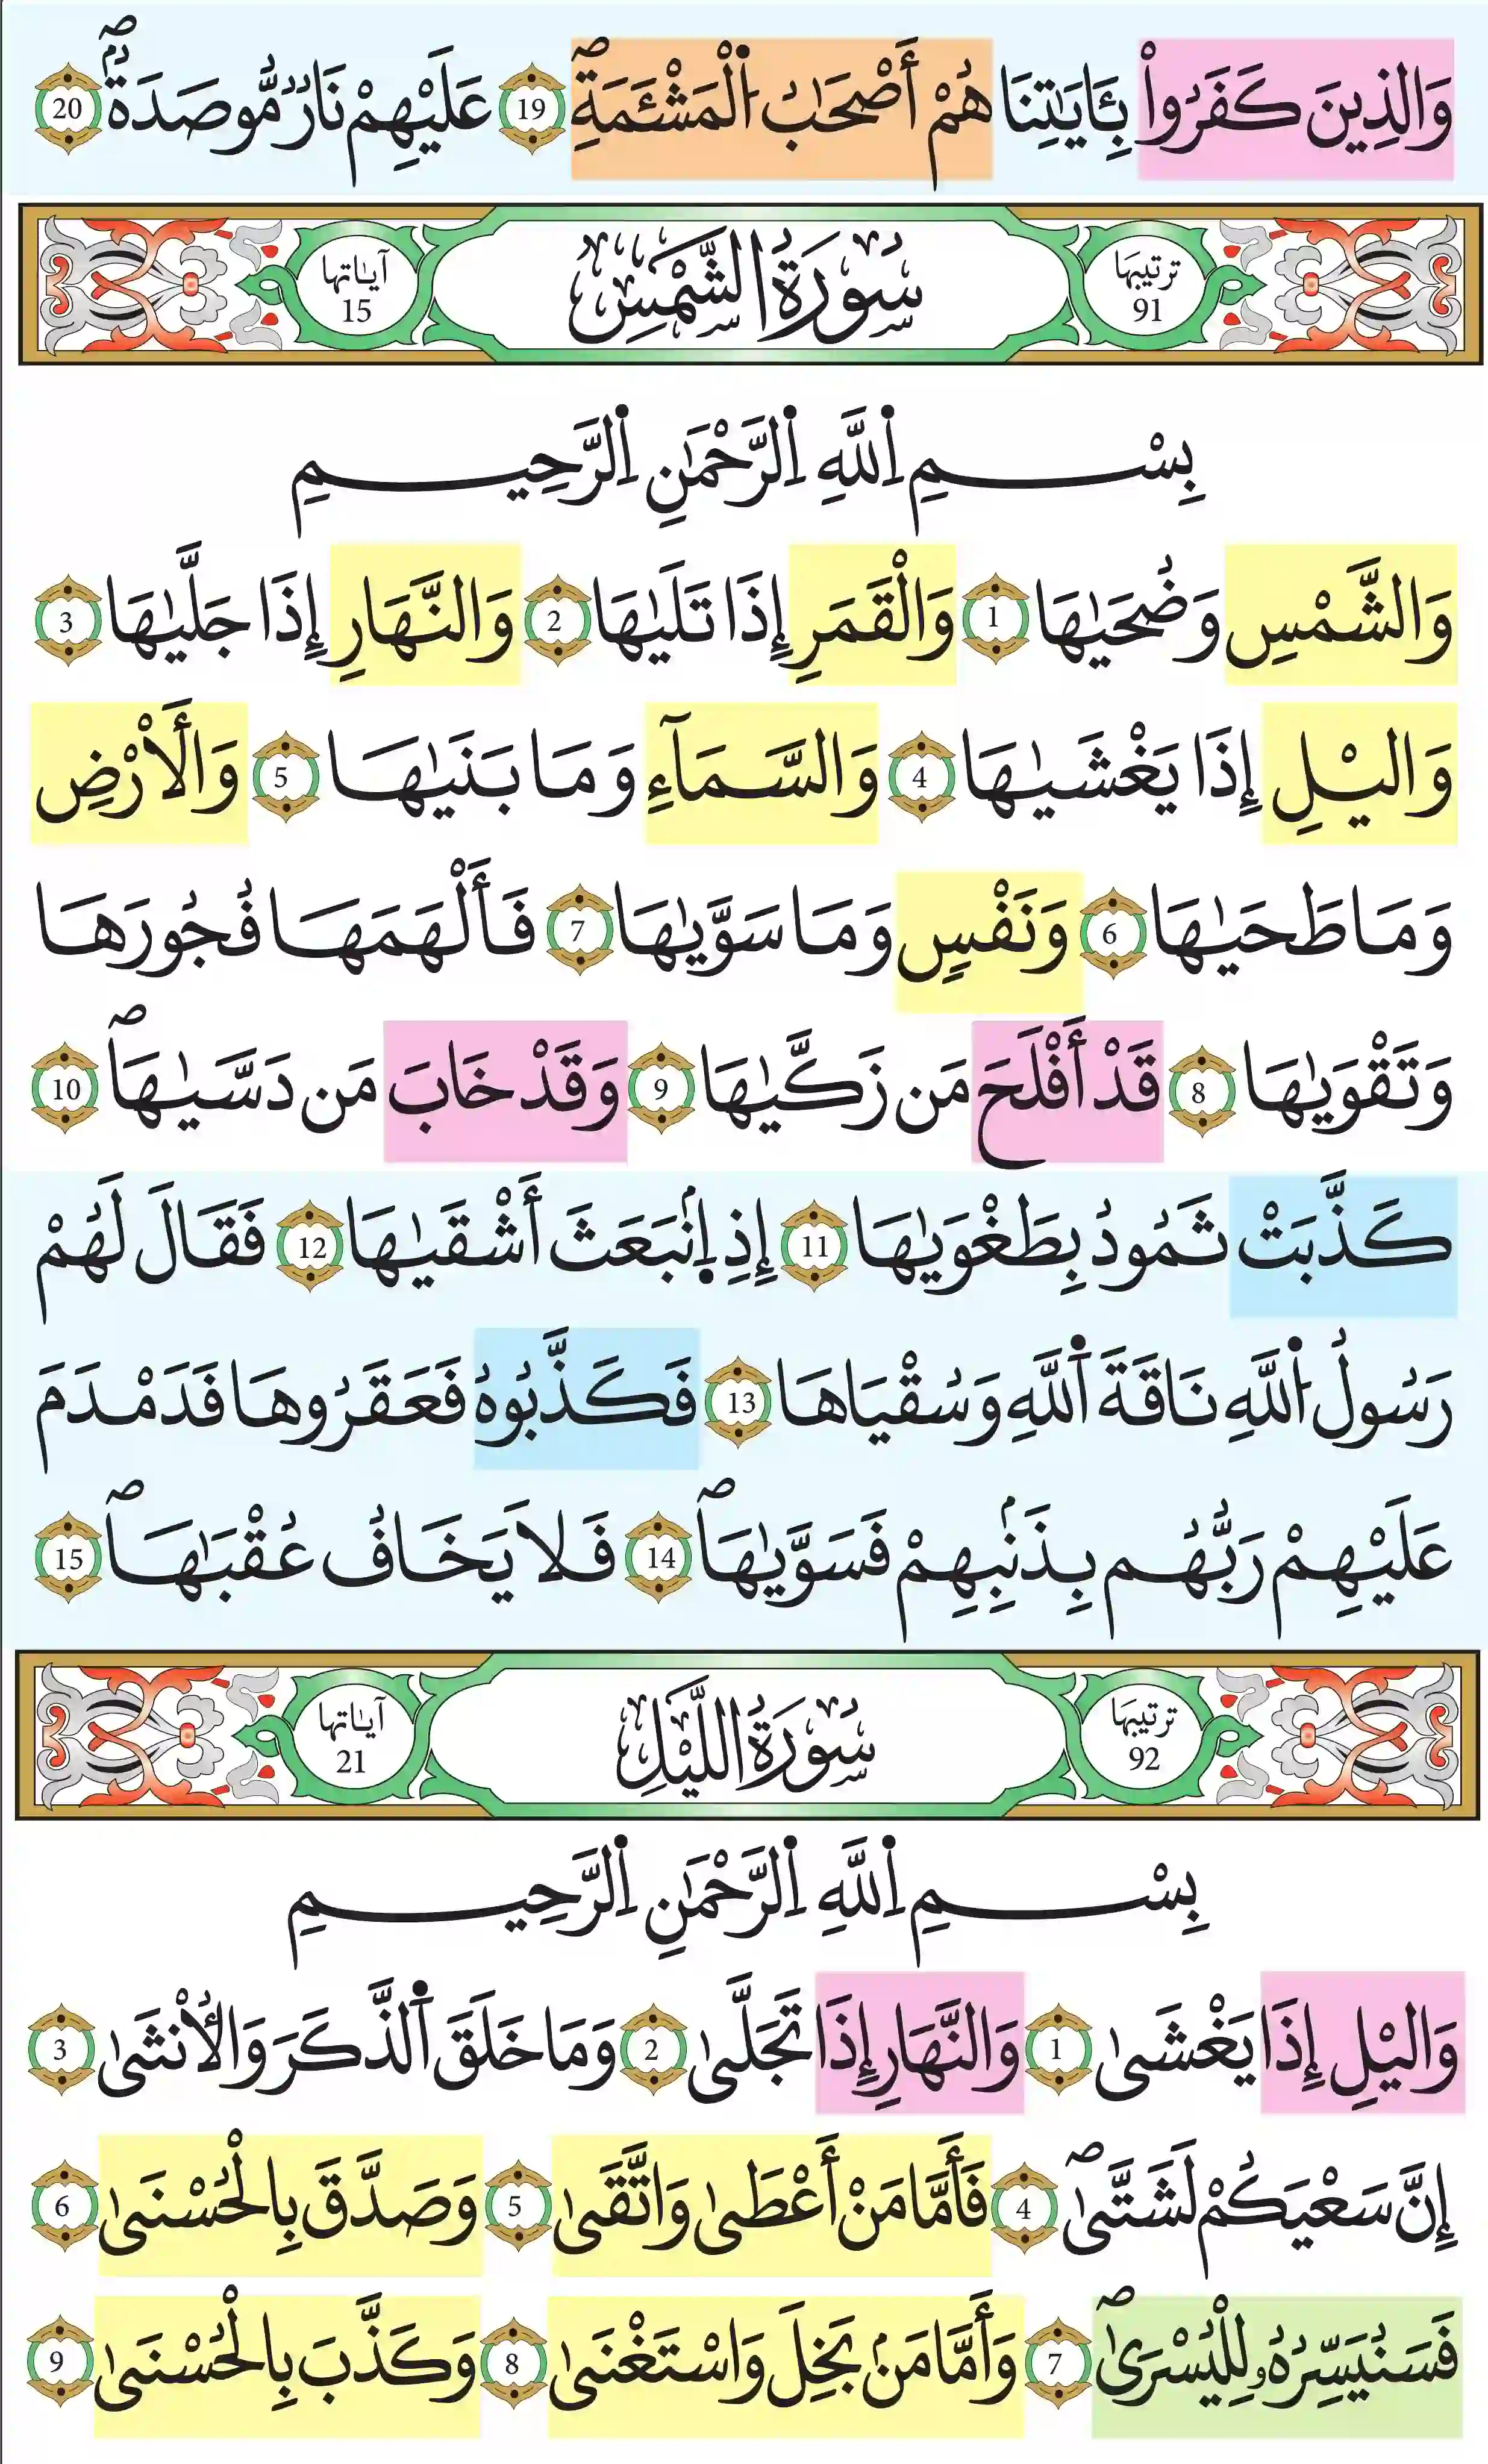 وَالذِينَ كَفَرُواْ بِـَٔايَٰتِنَا هُمُۥٓ أَصْحَٰبُ اُ۬لْمَشْـَٔمَةِۖ 19 عَلَيْهِمْ نَارٞ مُّوصَدَةُۢۖ 20
ترتيبها 91 سُورَةُ الشَّمْسِ آياتها 15
بِسْمِ اِ۬للَّهِ اِ۬لرَّحْمَٰنِ اِ۬لرَّحِيمِ
وَالشَّمْسِ وَضُحَيٰهَا 1 وَالْقَمَرِ إِذَا تَلَيٰهَا 2 وَالنَّهَارِ إِذَا جَلَّيٰهَا 3
وَاليْلِ إِذَا يَغْشَيٰهَا 4 وَالسَّمَآءِ وَمَا بَنَيٰهَا 5 وَالَارْضِ
وَمَا طَحَيٰهَا 6 وَنَفْسٖ وَمَا سَوَّيٰهَا 7 فَأَلْهَمَهَا فُجُورَهَا
وَتَقْوَيٰهَا 8 قَدْ أَفْلَحَ مَن زَكَّيٰهَا 9 وَقَدْ خَابَ مَن دَسَّيٰهَاۖ 10
كَذَّبَتْ ثَمُودُ بِطَغْوَيٰهَا 11 إِذِ اِ۪نۢبَعَثَ أَشْقَيٰهَا 12 فَقَالَ لَهُمْ
رَسُولُ اُ۬للَّهِ نَاقَةَ اَ۬للَّهِ وَسُقْيَاهَا 13 فَكَذَّبُوهُ فَعَقَرُوهَا فَدَمْدَمَ
عَلَيْهِمْ رَبُّهُم بِذَنۢبِهِمْ فَسَوَّيٰهَاۖ 14 فَلَا يَخَافُ عُقْبَٰهَاۖ 15
ترتيبها 92 سُورَةُ اللَّيْلِ آياتها 21
بِسْمِ اِ۬للَّهِ اِ۬لرَّحْمَٰنِ اِ۬لرَّحِيمِ
وَاليْلِ إِذَا يَغْشَىٰ 1 وَالنَّهَارِ إِذَا تَجَلَّىٰ 2 وَمَا خَلَقَ اَ۬لذَّكَرَ وَالُانثَىٰ 3
إِنَّ سَعْيَكُمْ لَشَتَّىٰۖ 4 فَأَمَّا مَنْ أَعْطَىٰ وَاتَّقَىٰ 5 وَصَدَّقَ بِالْحُسْنَىٰ 6
فَسَنُيَسِّرُهُۥ لِلْيُسْرَىٰۖ 7 وَأَمَّا مَنۢ بَخِلَ وَاسْتَغْنَىٰ 8 وَكَذَّبَ بِالْحُسْنَىٰ 9